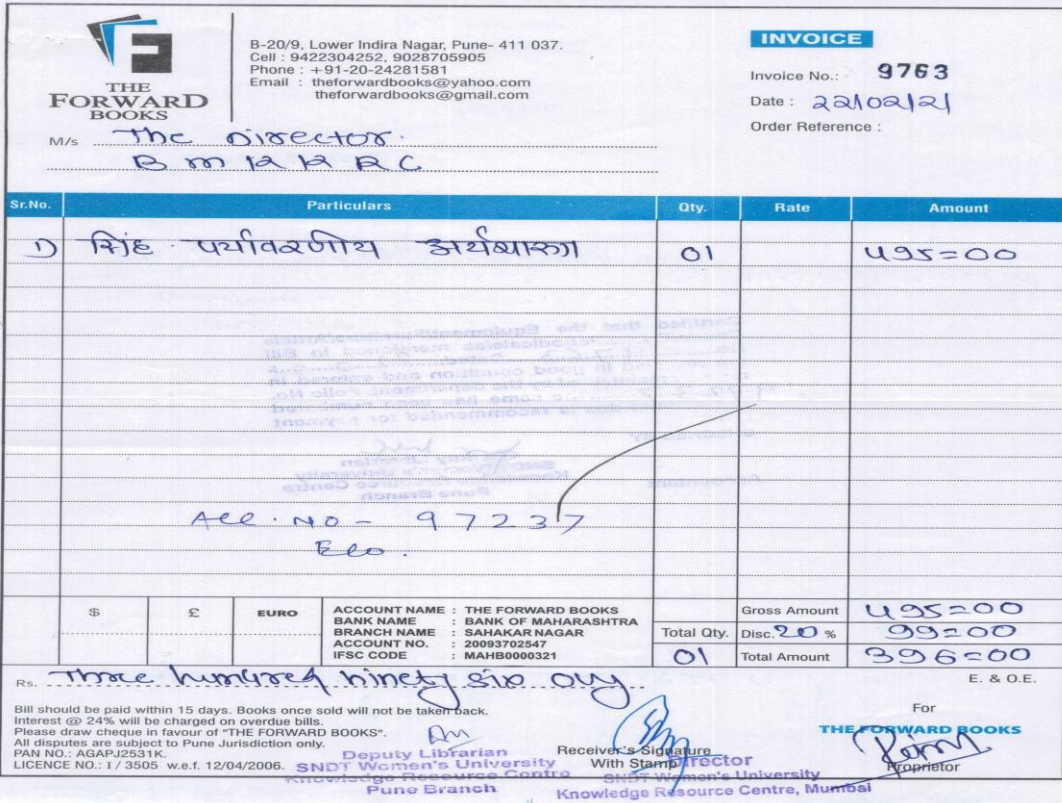 THE
FORWARD
BOOKS
B-20/9, Lower Indira Nagar, Pune- 411 037.
Cell : 9422304252, 9028705905
Phone : +91-20-24281581
Email : theforwardbooks@yahoo.com
theforwardbooks@gmail.com
INVOICE
Invoice No.: 9763
Date : 22/02/21
Order Reference :
M/s The Director.
B M K K R C
Sr.No. Particulars Qty. Rate Amount
1) सिंह पर्यावरणीय अर्थशास्त्र 01 495=00
Certified that the Equipment
mentioned in Bill
in good condition and entered in
by the department Folio No.
is recommended for payment
SNDT Women's University
Knowledge Resource Centre
Pune Branch
Acc. No - 97237
Eco.
$ £ EURO
ACCOUNT NAME : THE FORWARD BOOKS
BANK NAME : BANK OF MAHARASHTRA
BRANCH NAME : SAHAKAR NAGAR
ACCOUNT NO. : 20093702547
IFSC CODE : MAHB0000321
Gross Amount 495=00
Total Qty. Disc. 20 % 99=00
01 Total Amount 396=00
Rs. Three hundred ninety six only
E. & O.E.
Bill should be paid within 15 days. Books once sold will not be taken back.
Interest @ 24% will be charged on overdue bills.
Please draw cheque in favour of "THE FORWARD BOOKS".
All disputes are subject to Pune Jurisdiction only.
PAN NO.: AGAPJ2531K.
LICENCE NO.: I / 3505 w.e.f. 12/04/2006.
Deputy Librarian
SNDT Women's University
Knowledge Resource Centre
Pune Branch
Receiver's Signature
With Stamp
Director
SNDT Women's University
Knowledge Resource Centre, Mumbai
For
THE FORWARD BOOKS
Proprietor